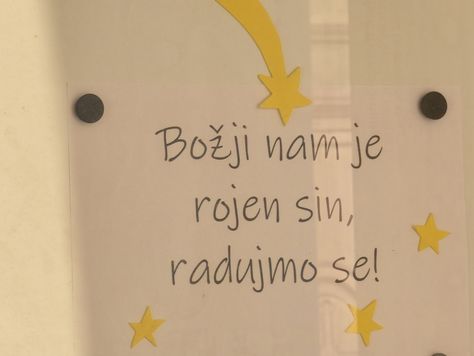 Božji nam je
rojen sin,
radujmo se!